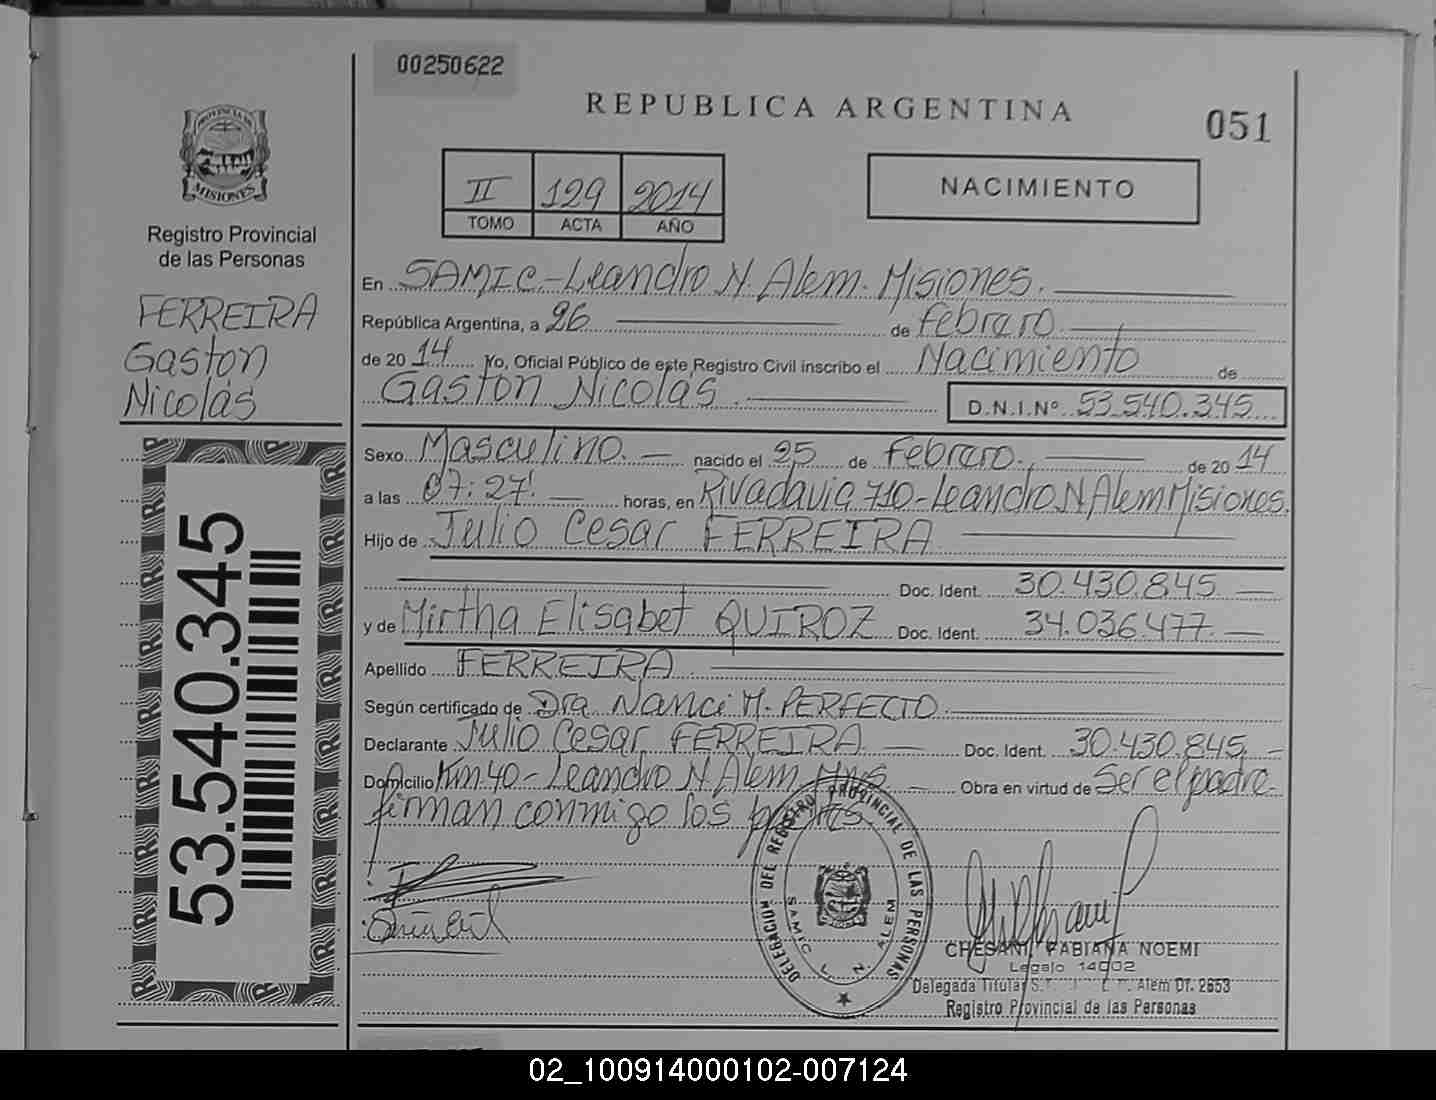 00250622
REPUBLICA ARGENTINA
051
PROVINCIA DE
MISIONES
Registro Provincial
de las Personas
FERREIRA
Gaston
Nicolás
II 129 2014
TOMO ACTA AÑO
NACIMIENTO
En SAMIC-Leandro N. Alem. Misiones.
República Argentina, a 26 de febrero
de 20 14 Yo, Oficial Público de este Registro Civil inscribo el Nacimiento de
Gaston Nicolás.
D.N.I.Nº 53.540.345
Sexo Masculino. nacido el 25 de Febrero. de 20 14
a las 07:27' horas, en Rivadavia 710-Leandro N Alem Misiones.
Hijo de Julio Cesar FERREIRA
Doc. Ident. 30.430.845
y de Mirtha Elisabet QUIROZ Doc. Ident. 34.036.477
Apellido FERREIRA
Según certificado de Dra Nanci M. PERFECTO
Declarante Julio Cesar FERREIRA Doc. Ident. 30.430.845
Domicilio Km 40-Leandro N Alem Mnes Obra en virtud de Ser el padre
firman conmigo los padres.
53.540.345
DELEGACION DEL REGISTRO PROVINCIAL DE LAS PERSONAS
SAMIC L. N. ALEM
CHESANI, FABIANA NOEMI
Legajo 14002
Delegada Titular Alem Of. 2653
Registro Provincial de las Personas
02_100914000102-007124